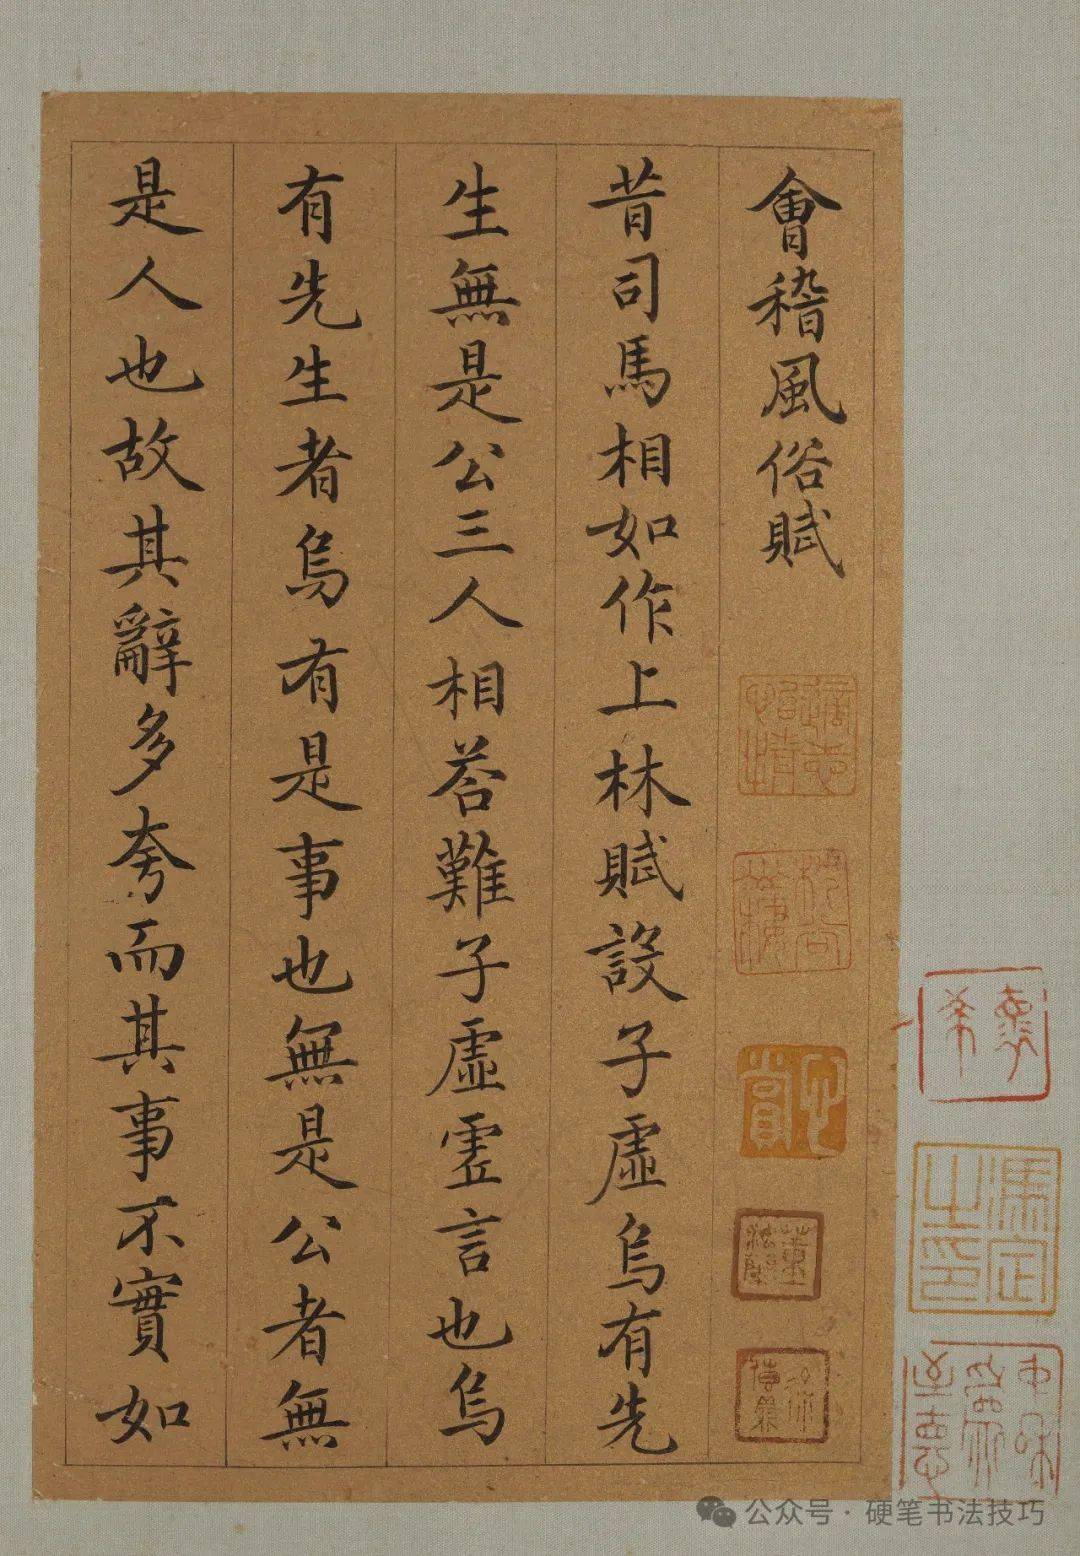 會稽風俗賦
昔司馬相如作上林賦設子虛烏有先
生無是公三人相荅難子虛虛言也烏
有先生者烏有是事也無是公者無
是人也故其辭多夸而其事不實如
心賞
公众号·硬笔书法技巧